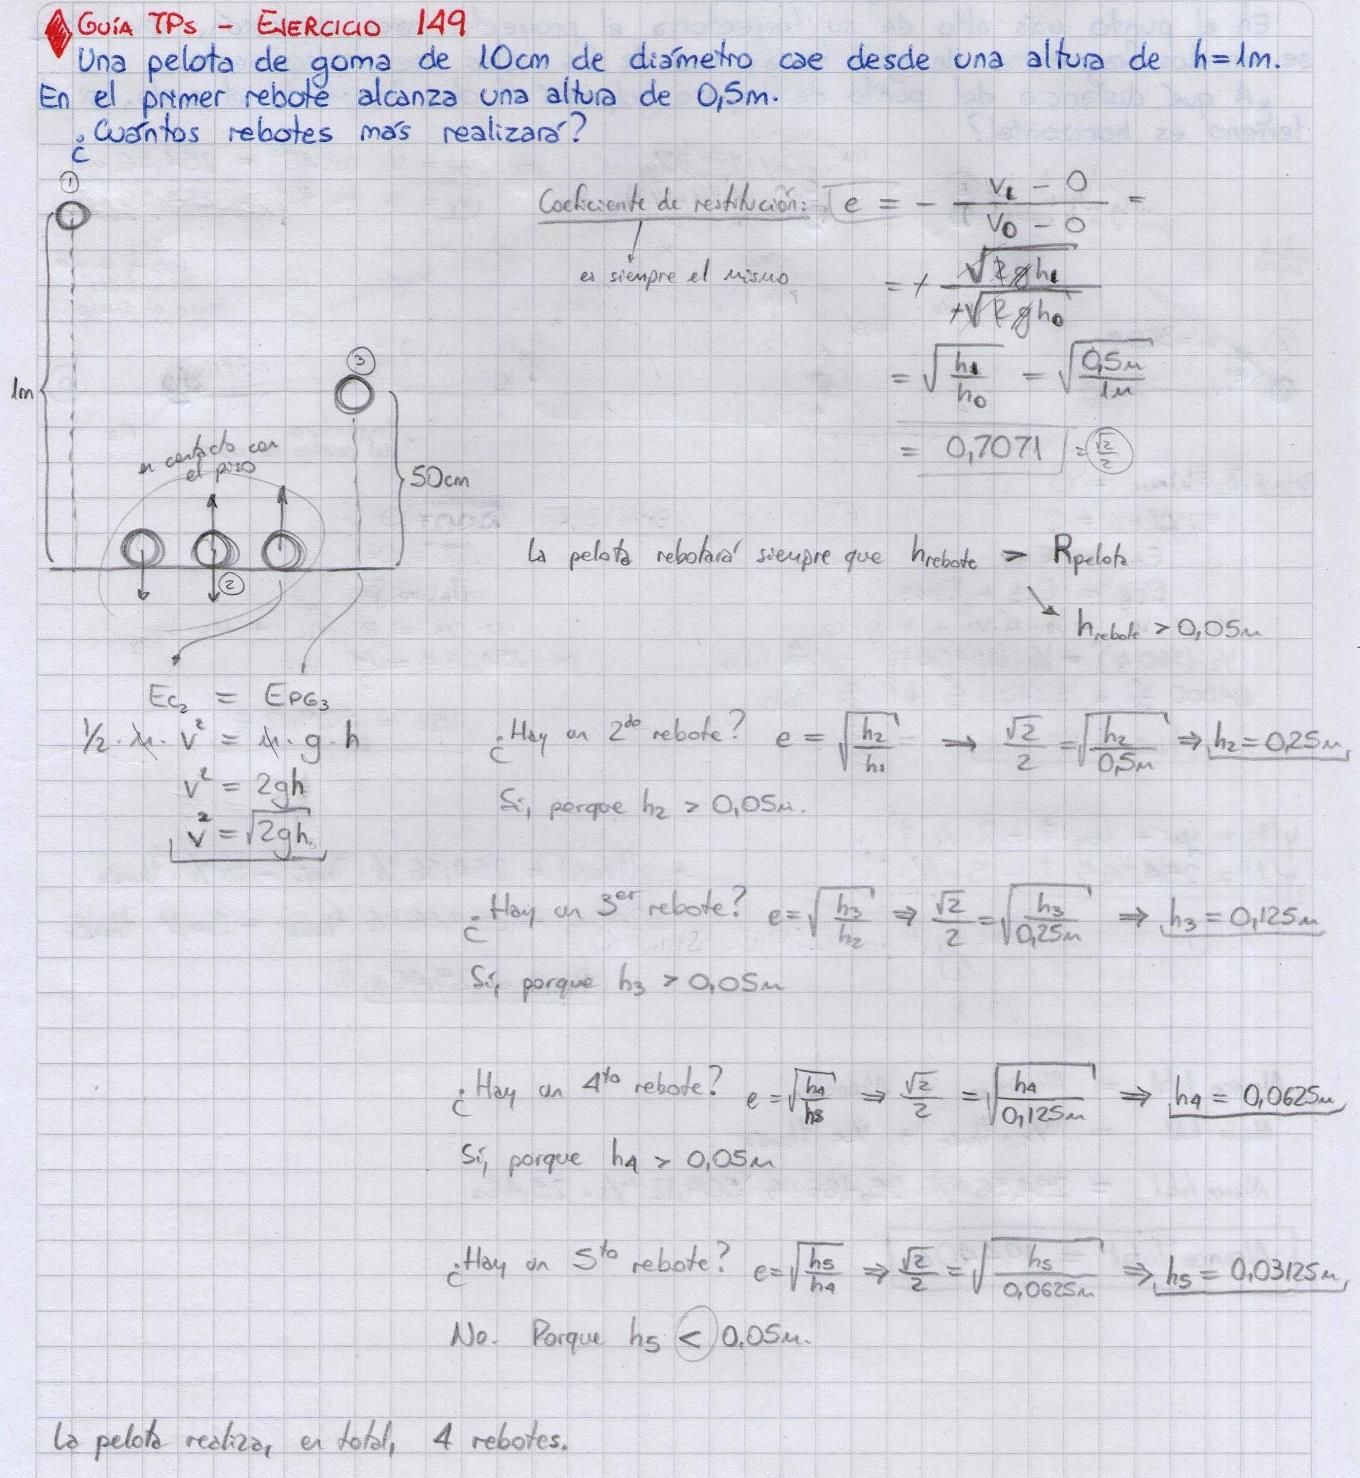 GUÍA TPs - EJERCICIO 149
Una pelota de goma de 10cm de diámetro cae desde una altura de h=1m.
En el primer rebote alcanza una altura de 0,5m.
¿Cuántos rebotes más realizará?
1
Coeficiente de restitución: e = - (V1 - 0)/(V0 - 0) =
es siempre el mismo
= + √(2gh1)/+√(2gh0)
3
1m
= √(h1/h0) = √(0,5m/1m)
en contacto con
el piso
= 0,7071 = √2/2
50cm
2
La pelota rebotará siempre que hrebote > Rpelota
hrebote > 0,05m
Ec2 = EPG3
1/2 . m . v² = m . g . h
v² = 2gh
v² = √2gh
¿Hay un 2do rebote? e = √(h2/h1) → √2/2 = √(h2/0,5m) ⇒ h2 = 0,25m
Sí, porque h2 > 0,05m.
¿Hay un 3er rebote? e = √(h3/h2) ⇒ √2/2 = √(h3/0,25m) ⇒ h3 = 0,125m
Sí, porque h3 > 0,05m
¿Hay un 4to rebote? e = √(h4/h3) ⇒ √2/2 = √(h4/0,125m) ⇒ h4 = 0,0625m
Sí, porque h4 > 0,05m
¿Hay un 5to rebote? e = √(h5/h4) ⇒ √2/2 = √(h5/0,0625m) ⇒ h5 = 0,03125m
No. Porque h5 < 0,05m.
La pelota realiza, en total, 4 rebotes.